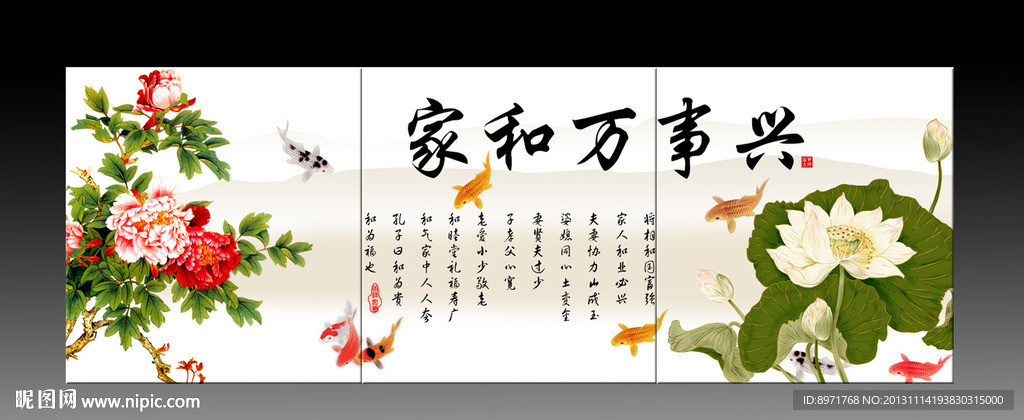 家和万事兴
将相和国富强
家人和业必兴
夫妻协力山成玉
婆媳同心土变金
妻贤夫过少
子孝父心宽
老爱小少敬老
和睦堂礼福寿广
和气家中人人夸
孔子曰和为贵
和为福也
昵图网 www.nipic.com
ID:8971768 NO:20131114193830315000